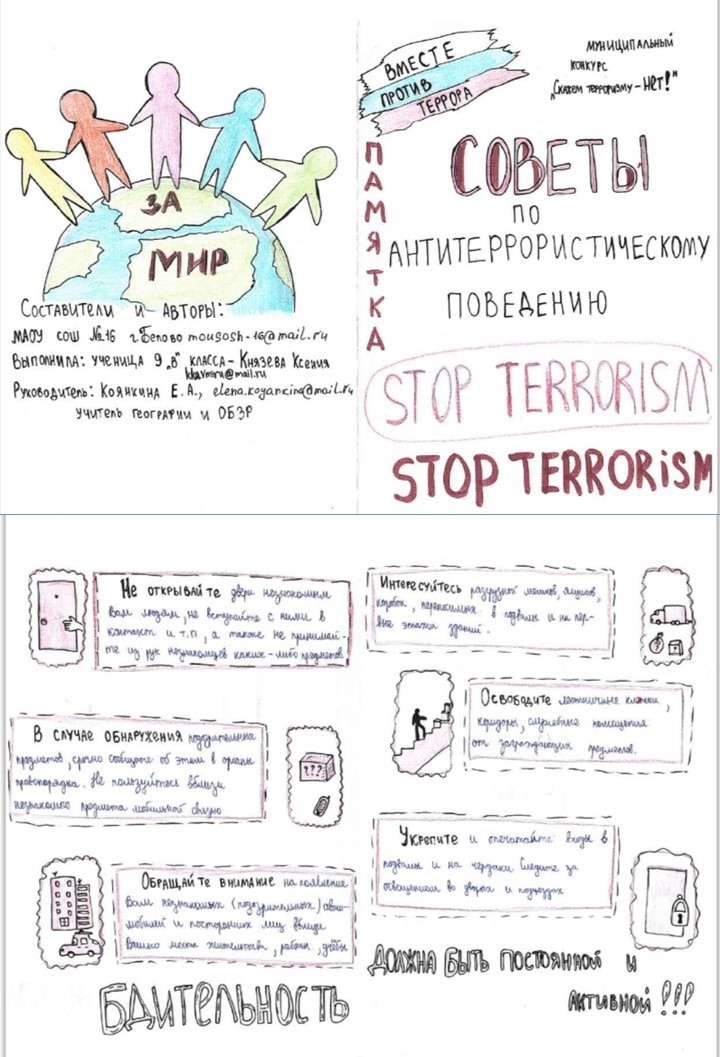 ЗА
МИР
Составители и авторы:
МАОУ СОШ №16 г.Белово mousosh-16@mail.ru
Выполнила: ученица 9 „в" класса - Князева Ксения
Руководитель: Коянкина Е.А., elena.koyankina@mail.ru
учитель географии и ОБЗР
ВМЕСТЕ
ПРОТИВ
ТЕРРОРА
МУНИЦИПАЛЬНЫЙ
КОНКУРС
„Скажем терроризму - НЕТ!"
ПАМЯТКА
СОВЕТЫ
ПО
АНТИТЕРРОРИСТИЧЕСКОМУ
ПОВЕДЕНИЮ
STOP TERRORISM
STOP TERRORiSM
Не открывайте двери незнакомым
Вам людям, не вступайте с ними в
контакт и т.п, а также не принимай-
те из рук незнакомцев каких-либо предметов
В случае обнаружения подозрительных
предметов, срочно сообщите об этом в органы
правопорядка. Не пользуйтесь вблизи
незнакомого предмета мобильной связью
???
Обращайте внимание на появление
Вам незнакомых (подозрительных) авто-
мобилей и посторонних лиц вблизи
Вашего места жительства, работы, учёбы
БДИТЕЛЬНОСТЬ
Интересуйтесь разгрузкой мешков, ящиков,
коробок, переносимых в подвалы и на пер-
вые этажи зданий.
Освободите лестничные клетки,
коридоры, служебные помещения
от загромождающих предметов.
Укрепите и опечатайте входы в
подвалы и на чердаки Следите за
освещением во дворах и подъездах
ДОЛЖНА БЫТЬ ПОСТОЯННОЙ И
АКТИВНОЙ !!!